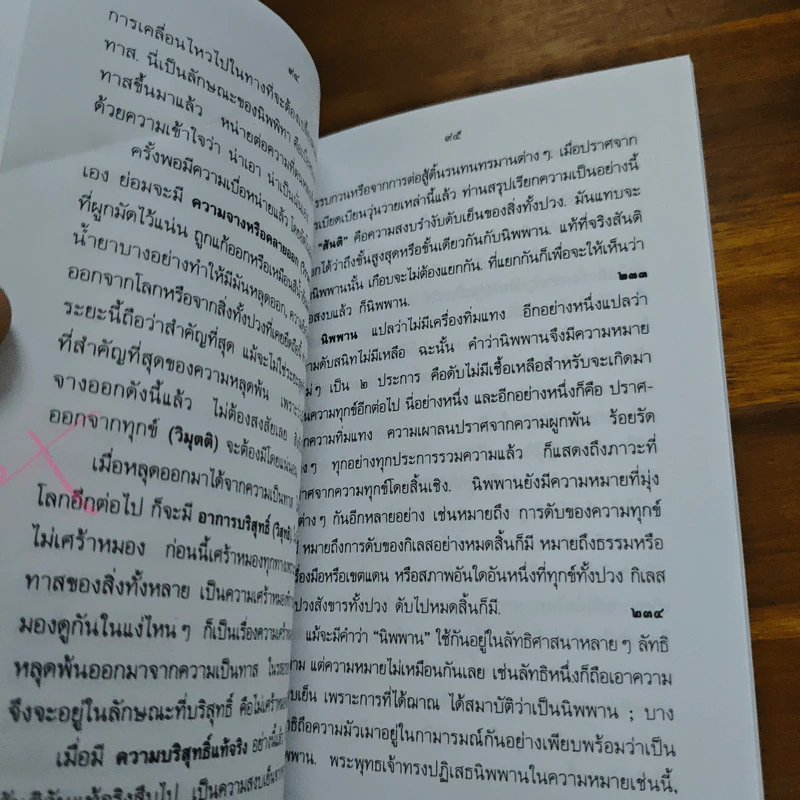 ๙๔
การเคลื่อนไหวไปในทางที่จะต้อง
ทาส. นี่เป็นลักษณะของนิพพิทา
ทาสขึ้นมาแล้ว หน่ายต่อความ
ด้วยความเข้าใจว่า น่าเอา น่าเป็น
ครั้งพอมีความเบื่อหน่ายแล้ว
เอง ย่อมจะมี ความจางหรือคลายออก
ที่ผูกมัดไว้แน่น ถูกแก้ออกหรือเหมือน
น้ำยาบางอย่างทำให้มีมันหลุดออก,
ออกจากโลกหรือจากสิ่งทั้งปวงที่เคยยึดถือ
ระยะนี้ถือว่าสำคัญที่สุด แม้จะไม่ใช่
ที่สำคัญที่สุดของความหลุดพ้น
จางออกดังนี้แล้ว ไม่ต้องสงสัยเลย
ออกจากทุกข์ (วิมุตติ) จะต้องมีโดย
เมื่อหลุดออกมาได้จากความเป็นทาส
โลกอีกต่อไป ก็จะมี อาการบริสุทธิ์ (วิสุทธิ)
ไม่เศร้าหมอง ก่อนนี้เศร้าหมองทุกทาง
ทาสของสิ่งทั้งหลาย เป็นความเศร้าหมอง
มองดูกันในแง่ไหนๆ ก็เป็นเรื่องความเศร้า
หลุดพ้นออกมาจากความเป็นทาส
จึงจะอยู่ในลักษณะที่บริสุทธิ์ คือไม่เศร้า
เมื่อมี ความบริสุทธิ์แท้จริง อย่างนี้
แท้จริงสืบไป เป็นความสงบเย็น
๙๕
รบกวนหรือจากการต่อสู้ดิ้นรนทนทรมานต่างๆ. เมื่อปราศจาก
เบียดเบียนวุ่นวายเหล่านี้แล้ว ท่านสรุปเรียกความเป็นอย่างนี้
"สันติ" คือความสงบรำงับดับเย็นของสิ่งทั้งปวง. มันแทบจะ
กได้ว่าถึงขั้นสูงสุดหรือขั้นเดียวกันกับนิพพาน. แท้ที่จริงสันติ
นิพพานนั้น เกือบจะไม่ต้องแยกกัน. ที่แยกกันก็เพื่อจะให้เห็นว่า
อสงบแล้ว ก็นิพพาน. ๒๓๓
นิพพาน แปลว่าไม่มีเครื่องทิ่มแทง อีกอย่างหนึ่งแปลว่า
ามดับสนิทไม่มีเหลือ ฉะนั้น คำว่านิพพานจึงมีความหมาย
ๆ เป็น ๒ ประการ คือดับไม่มีเชื้อเหลือสำหรับจะเกิดมา
นความทุกข์อีกต่อไป นี่อย่างหนึ่ง และอีกอย่างหนึ่งก็คือ ปราศ-
กความทิ่มแทง ความเผาลนปราศจากความผูกพัน ร้อยรัด
างๆ ทุกอย่างทุกประการรวมความแล้ว ก็แสดงถึงภาวะที่
าศจากความทุกข์โดยสิ้นเชิง. นิพพานยังมีความหมายที่มุ่ง
ต่างๆ กันอีกหลายอย่าง เช่นหมายถึง การดับของความทุกข์
หมายถึงการดับของกิเลสอย่างหมดสิ้นก็มี หมายถึงธรรมหรือ
องมือหรือเขตแดน หรือสภาพอันใดอันหนึ่งที่ทุกข์ทั้งปวง กิเลส
ปวงสังขารทั้งปวง ดับไปหมดสิ้นก็มี. ๒๓๔
แม้จะมีคำว่า "นิพพาน" ใช้กันอยู่ในลัทธิศาสนาหลายๆ ลัทธิ
าม แต่ความหมายไม่เหมือนกันเลย เช่นลัทธิหนึ่งก็ถือเอาความ
งบเย็น เพราะการที่ได้ฌาณ ได้สมาบัติว่าเป็นนิพพาน ; บาง
ธิถือความมัวเมาอยู่ในกามารมณ์กันอย่างเพียบพร้อมว่าเป็น
พพาน. พระพุทธเจ้าทรงปฏิเสธนิพพานในความหมายเช่นนี้,